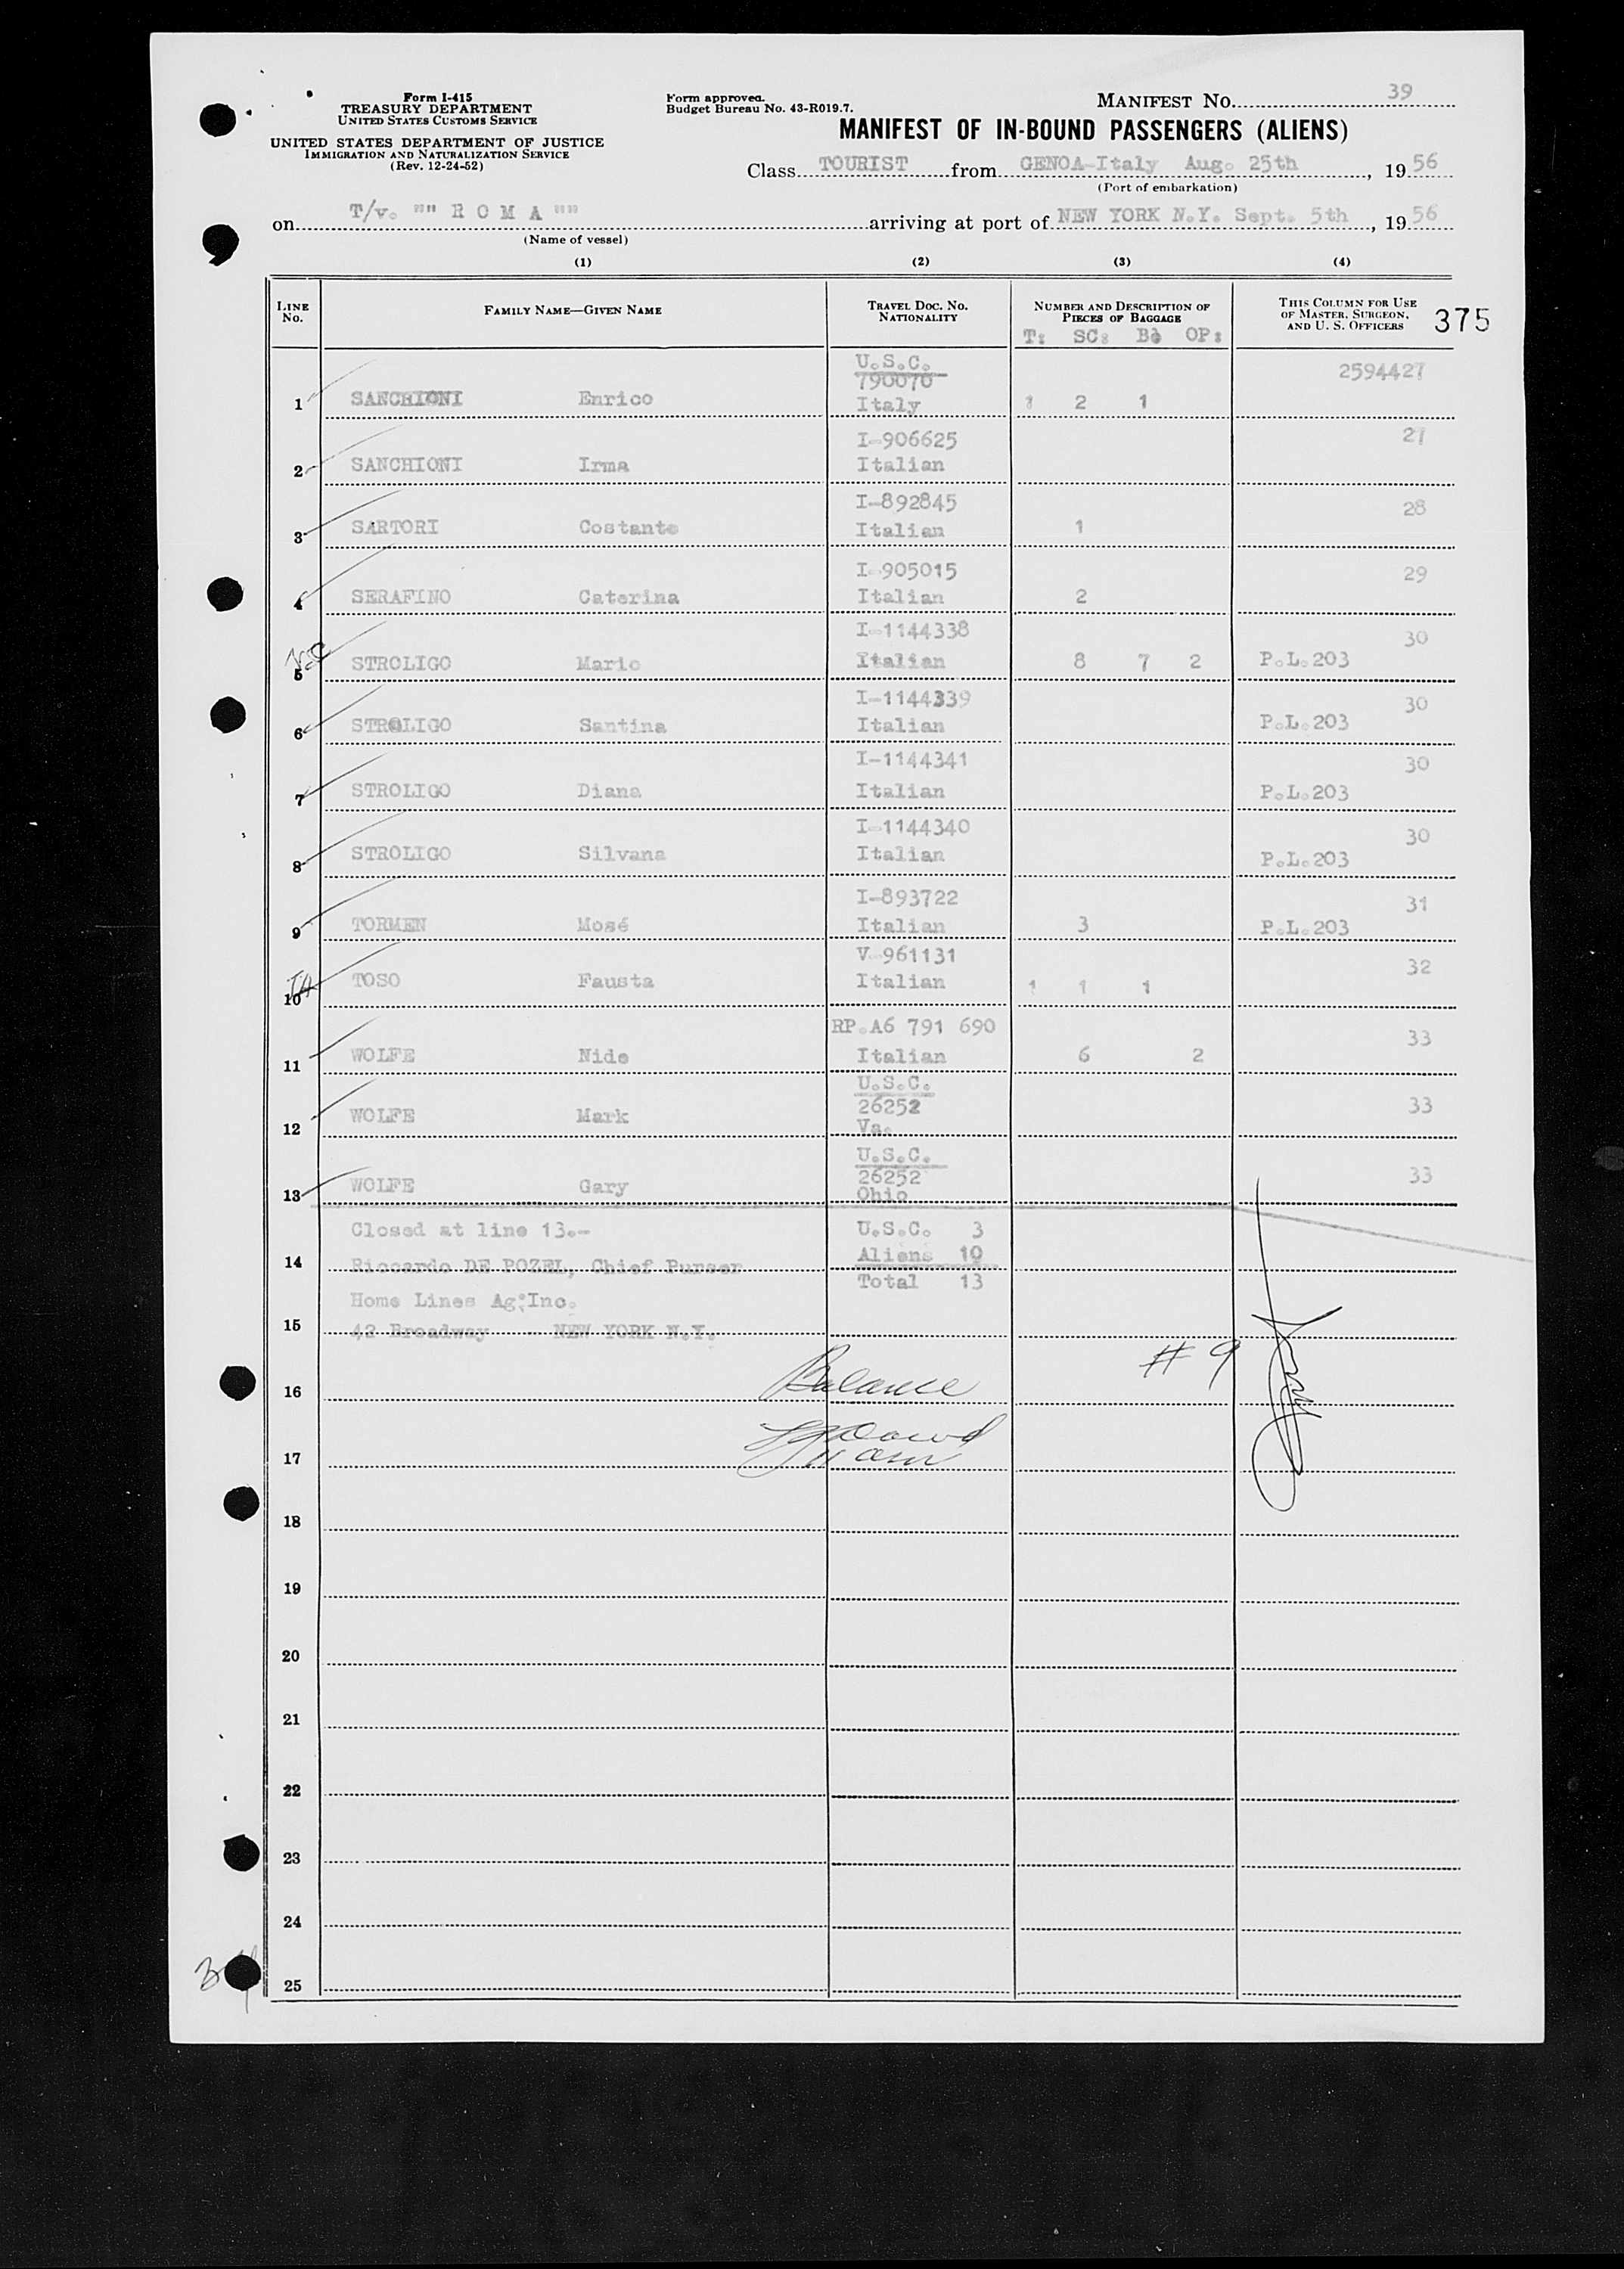 Form I-415
TREASURY DEPARTMENT
UNITED STATES CUSTOMS SERVICE
UNITED STATES DEPARTMENT OF JUSTICE
IMMIGRATION AND NATURALIZATION SERVICE
(Rev. 12-24-52)
Form approved.
Budget Bureau No. 43-R019.7.
MANIFEST NO. 39
MANIFEST OF IN-BOUND PASSENGERS (ALIENS)
Class TOURIST from GENOA-Italy Aug. 25th, 1956
(Port of embarkation)
on T/v. "" R O M A "" arriving at port of NEW YORK N.Y. Sept. 5th, 1956
(Name of vessel)
(1) (2) (3) (4)
LINE No. FAMILY NAME—GIVEN NAME TRAVEL DOC. NO. NATIONALITY NUMBER AND DESCRIPTION OF PIECES OF BAGGAGE THIS COLUMN FOR USE OF MASTER, SURGEON, AND U. S. OFFICERS 375
T: SC: B: OP:
U.S.C.
790070 2594427
1 SANCHIONI Enrico Italy 1 2 1
I-906625 27
2 SANCHIONI Irma Italian
I-892845 28
3 SARTORI Costante Italian 1
I-905015 29
4 SERAFINO Caterina Italian 2
I-1144338 30
5 STROLIGO Mario Italian 8 7 2 P.L.203
I-1144339 30
6 STROLIGO Santina Italian P.L.203
I-1144341 30
7 STROLIGO Diana Italian P.L.203
I-1144340 30
8 STROLIGO Silvana Italian P.L.203
I-893722 31
9 TORMEN Mosé Italian 3 P.L.203
V-961131 32
10 TOSO Fausta Italian 1 1 1
RP.A6 791 690 33
11 WOLFE Nide Italian 6 2
U.S.C.
26252 33
12 WOLFE Mark Va.
U.S.C.
26252 33
13 WOLFE Gary Ohio
Closed at line 13.- U.S.C. 3
14 Riccardo DE POZEL, Chief Purser Aliens 10
Total 13
Home Lines Ag:Inc.
15 42 Broadway - NEW YORK N.Y.
# 9
16 Balance
17
18
19
20
21
22
23
24
25